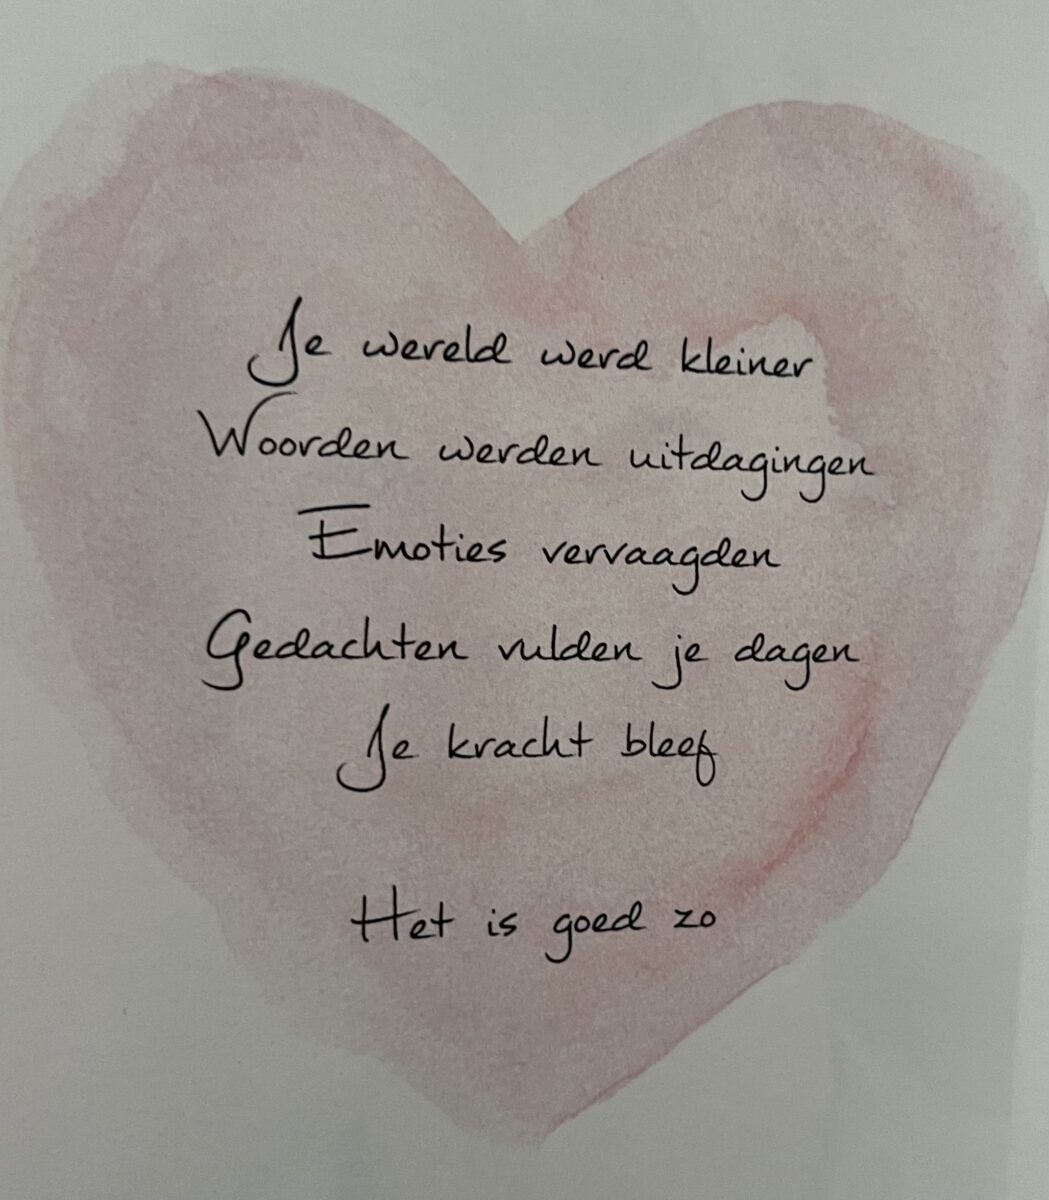 Je wereld werd kleiner
Woorden werden uitdagingen
Emoties vervaagden
Gedachten vulden je dagen
Je kracht bleef
Het is goed zo